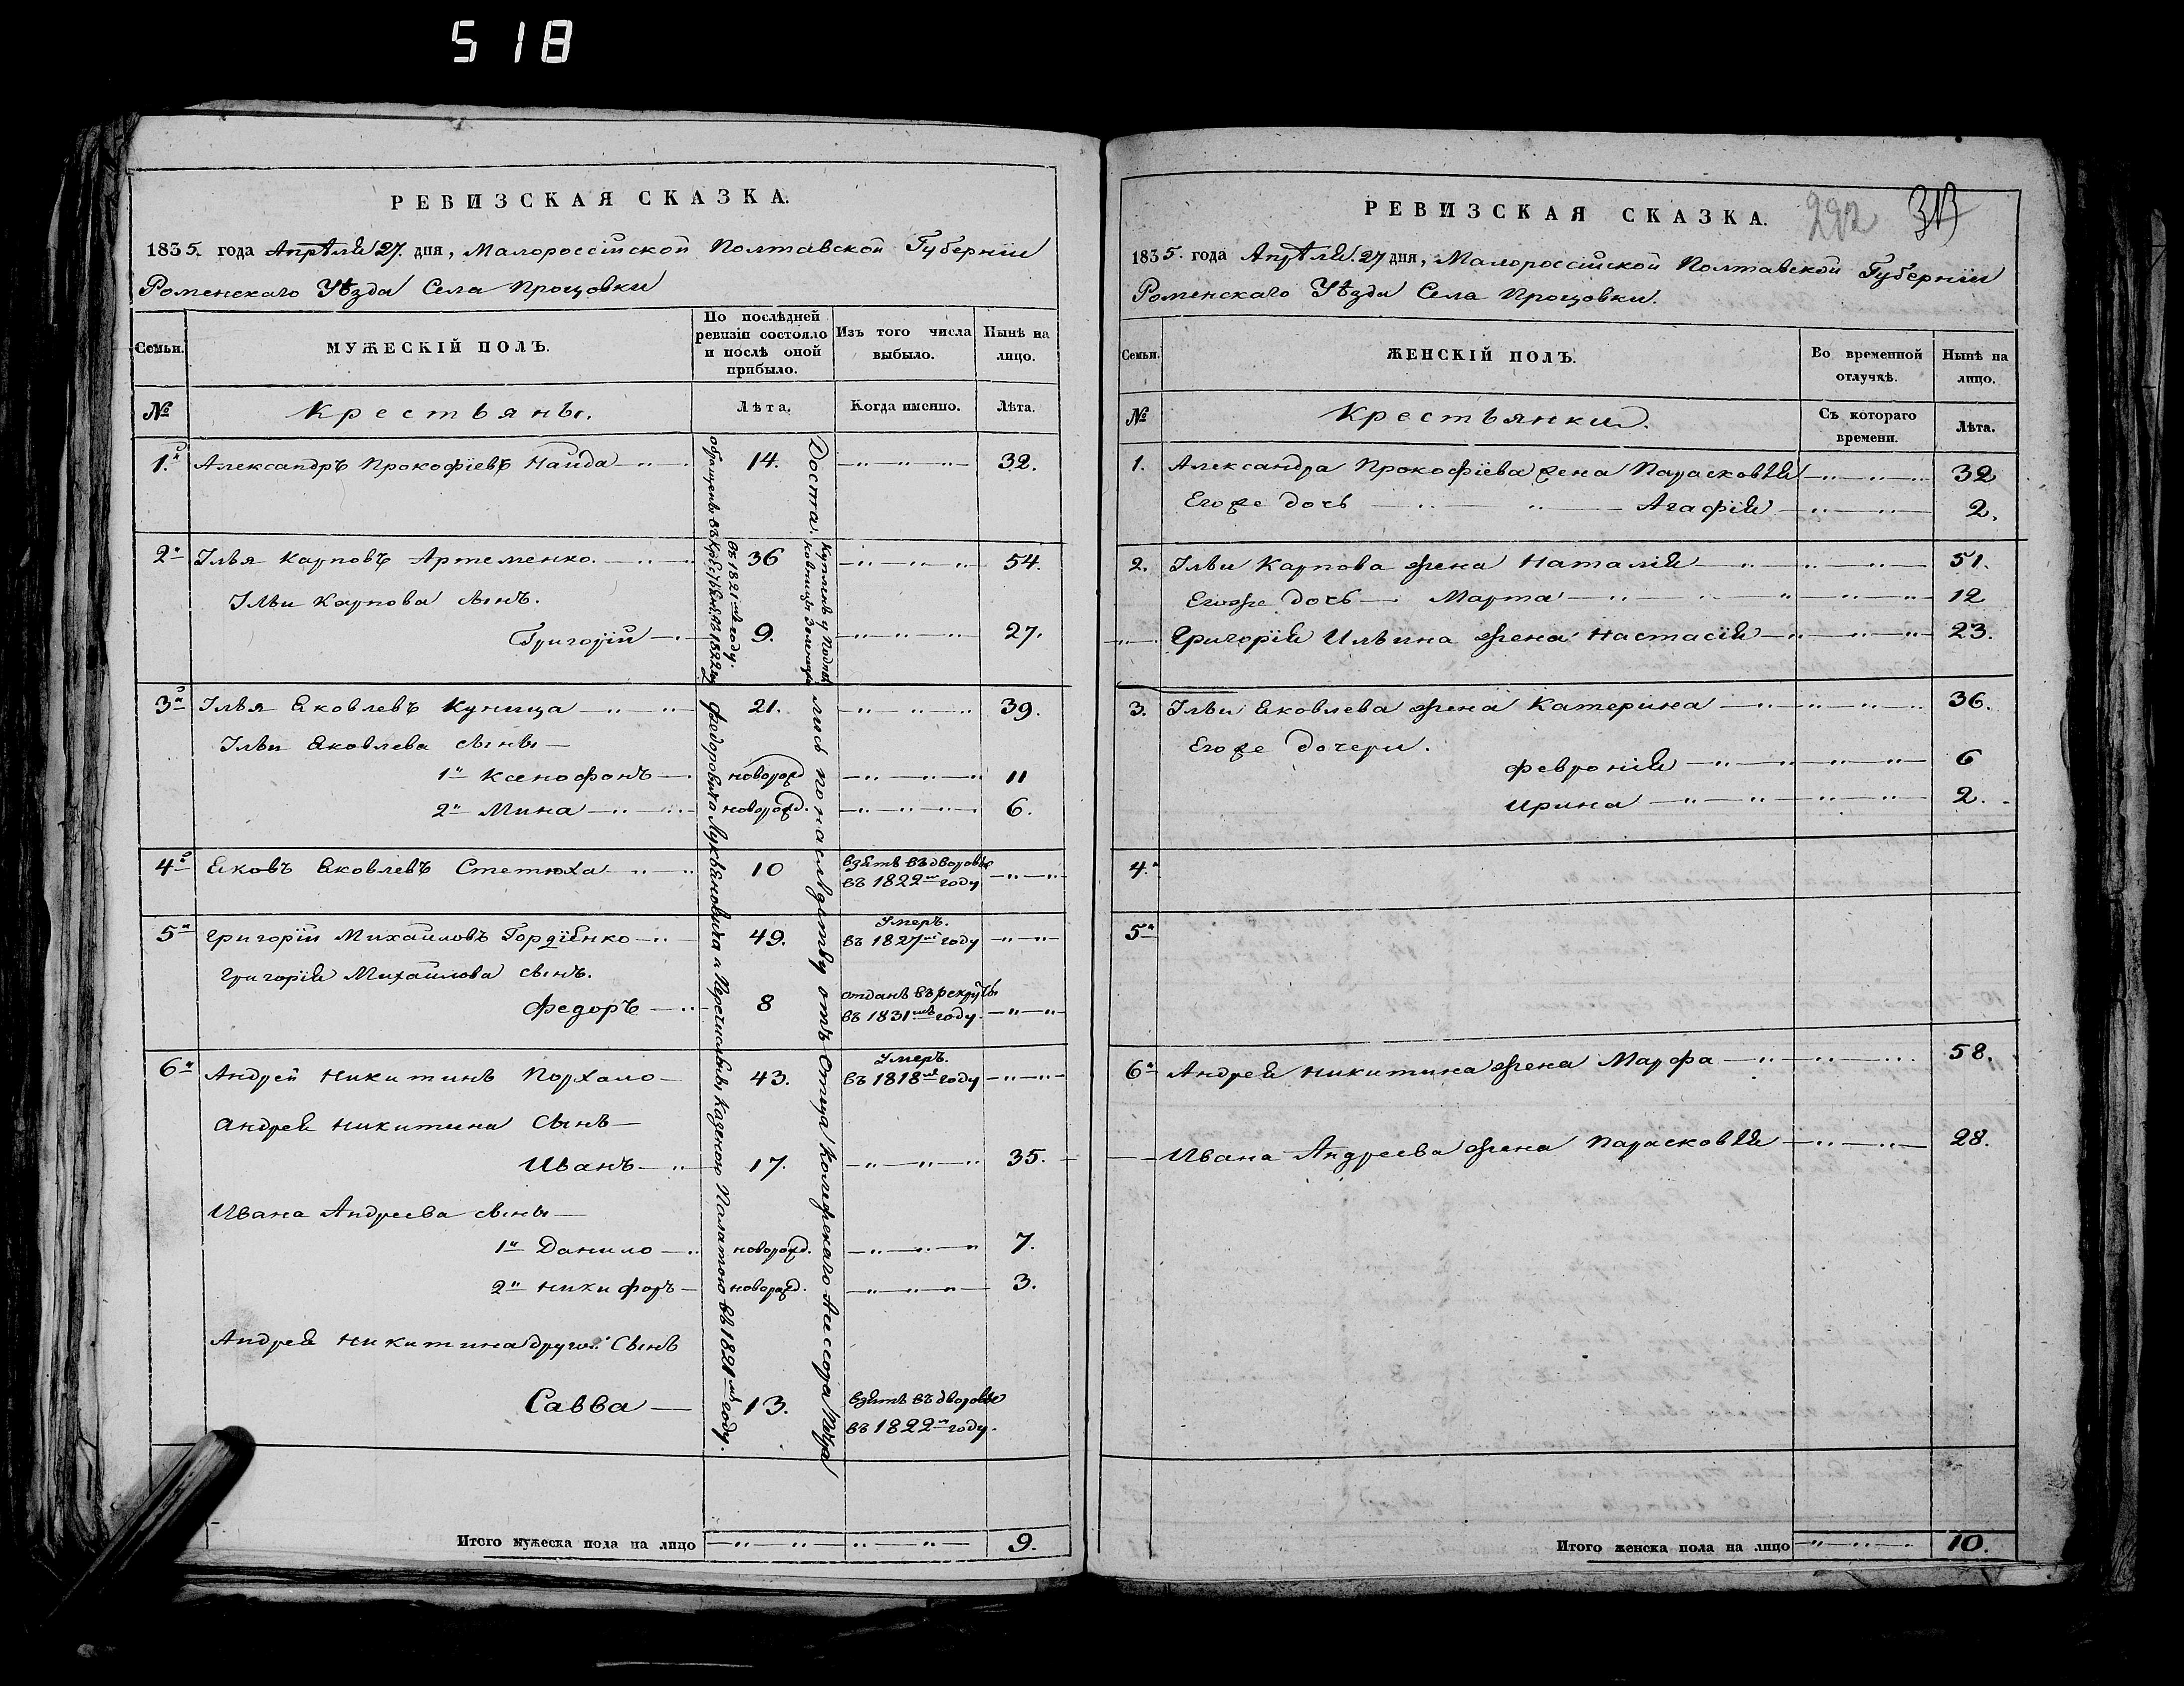 518
РЕВИЗСКАЯ СКАЗКА.
1835. года Апрѣля 27. дня, Малороссійской Полтавской Губерніи
Роменскаго Уѣзда Села Процовки
Семьи.
МУЖЕСКІЙ ПОЛЪ.
По послѣдней ревизіи состояло и послѣ оной прибыло.
Изъ того числа выбыло.
Нынѣ на лицо.
№
Крестьяне.
Лѣта.
Когда именно.
Лѣта.
1. Александръ Прокофіевъ Найда 14. 32.
2 Ілья Карповъ Артеменко. 36 54.
Ільи Карпова сынъ.
Григорій 9. 27.
3 Ілья Яковлевъ Куница 21. 39.
Ільи Яковлева сыны
1 Ксенофонъ новорожд 11
2 Мина новорожд. 6.
4 Яковъ Яковлевъ Стетюха 10 взятъ въ дворовые
въ 1822 году
5 Григорій Михайловъ Гордіенко 49. Умеръ.
въ 1827 году
Григорія Михайлова сынъ.
Федоръ 8 отданъ въ рекруты
въ 1831 году
6 Андрей Никитинъ Порхало 43. Умеръ.
въ 1818 году
Андрея Никитина Сынъ
Иванъ 17. 35.
Ивана Андреева сыны
1 Данило новорожд. 7.
2 Никифоръ новорожд. 3.
Андрея Никитина другой Сынъ
Савва 13. взятъ въ дворовые
въ 1822 году.
обращенъ въ 1822
въ 1821 году.
Федоровича Лукьяновича и Перечисленъ Казенною Палатою въ 1821 году.
Купленъ у
Достались по наслѣдству отъ Отца Колежскаго Ассесора Петра
Итого мужеска пола на лицо 9.
РЕВИЗСКАЯ СКАЗКА.
1835. года Апрѣля. 27 дня, Малороссійской Полтавской Губерніи
Роменскаго Уѣзда Села Процовки.
Семьи.
ЖЕНСКІЙ ПОЛЪ.
Во временной отлучкѣ.
Нынѣ на лицо.
№
Крестьянки.
Съ котораго времени.
Лѣта.
1. Александра Прокофіева жена Парасковія 32
Его же дочь Агафія 2.
2. Ільи Карпова жена Наталія 51.
Егоже дочь Марта 12
Григорія Ильина жена Настасія 23.
3. Ільи Яковлева жена Катерина 36.
Его же дочери.
Февронія 6
Ирина 2.
4.
5
6 Андрея Никитина жена Марфа 58.
Ивана Андреева жена Парасковія 28.
Итого женска пола на лицо 10.